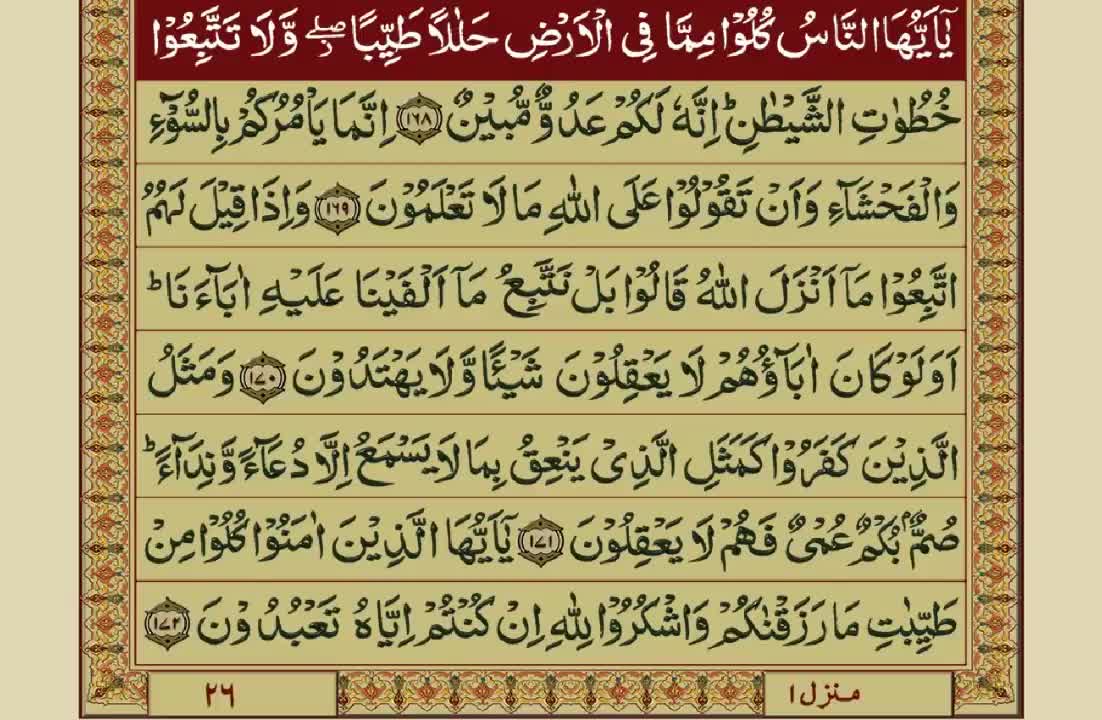 يٰۤاَيُّهَا النَّاسُ كُلُوْا مِمَّا فِى الْاَرْضِ حَلٰلًا طَيِّبًا ۖۗ وَّلَا تَتَّبِعُوْا
خُطُوٰتِ الشَّيْطٰنِ ؕ اِنَّهٗ لَكُمْ عَدُوٌّ مُّبِيْنٌ ﴿۱۶۸﴾ اِنَّمَا يَاْمُرُكُمْ بِالسُّوْٓءِ
وَالْفَحْشَآءِ وَاَنْ تَقُوْلُوْا عَلَى اللّٰهِ مَا لَا تَعْلَمُوْنَ ﴿۱۶۹﴾ وَاِذَا قِيْلَ لَهُمُ
اتَّبِعُوْا مَاۤ اَنْزَلَ اللّٰهُ قَالُوْا بَلْ نَتَّبِعُ مَاۤ اَلْفَيْنَا عَلَيْهِ اٰبَآءَنَا ؕ
اَوَلَوْ كَانَ اٰبَآؤُهُمْ لَا يَعْقِلُوْنَ شَيْئًا وَّلَا يَهْتَدُوْنَ ﴿۱۷۰﴾ وَمَثَلُ
الَّذِيْنَ كَفَرُوْا كَمَثَلِ الَّذِىْ يَنْعِقُ بِمَا لَا يَسْمَعُ اِلَّا دُعَآءً وَّنِدَآءً ؕ
صُمٌّۢ بُكْمٌ عُمْىٌ فَهُمْ لَا يَعْقِلُوْنَ ﴿۱۷۱﴾ يٰۤاَيُّهَا الَّذِيْنَ اٰمَنُوْا كُلُوْا مِنْ
طَيِّبٰتِ مَا رَزَقْنٰكُمْ وَاشْكُرُوْا لِلّٰهِ اِنْ كُنْتُمْ اِيَّاهُ تَعْبُدُوْنَ ﴿۱۷۲﴾
منزل ۱
۲۶